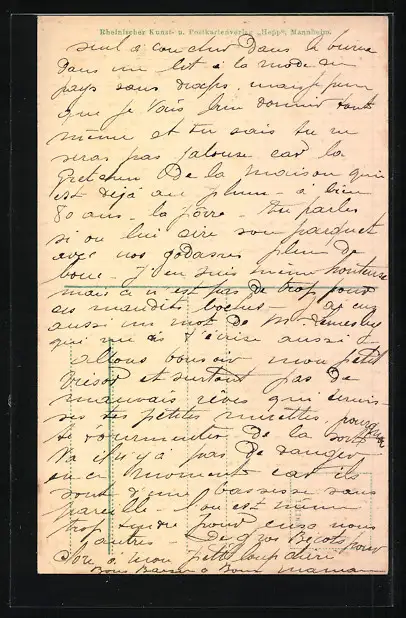 Rheinischer Kunst- u. Postkartenverlag „Hepp“, Mannheim.
seul à coucher dans le bureau
dans un lit à la mode du
pays sans draps.
que je vais bien dormir tout
même et tu sais tu ne
seras pas jalouse car la
Gretchen de la maison qui
est déjà au plum - à bien
80 ans - la pôvre - tu parles
si on lui cire son parquet
avec nos godasses plein de
boue - J'en suis même honteuse
mais ce n'est pas de trop pour
ces maudits boches - aj eu
aussi un mot de M.
qui m'a écrise aussi -
allons bonsoir mon petit
trésor et surtout pas de
mauvais rêves qui
ses tes petites minettes pourquoi
te tourmenter de la sorte
Va il n'y a pas de danger
en ce moment car ils
sont d'une bassesse sans
pareille - l'on est même
trop tendre pour eux nous
autres - De gros Bécots pour
Dore à mon petit loup chéri
Bons Baisers à Bonne maman